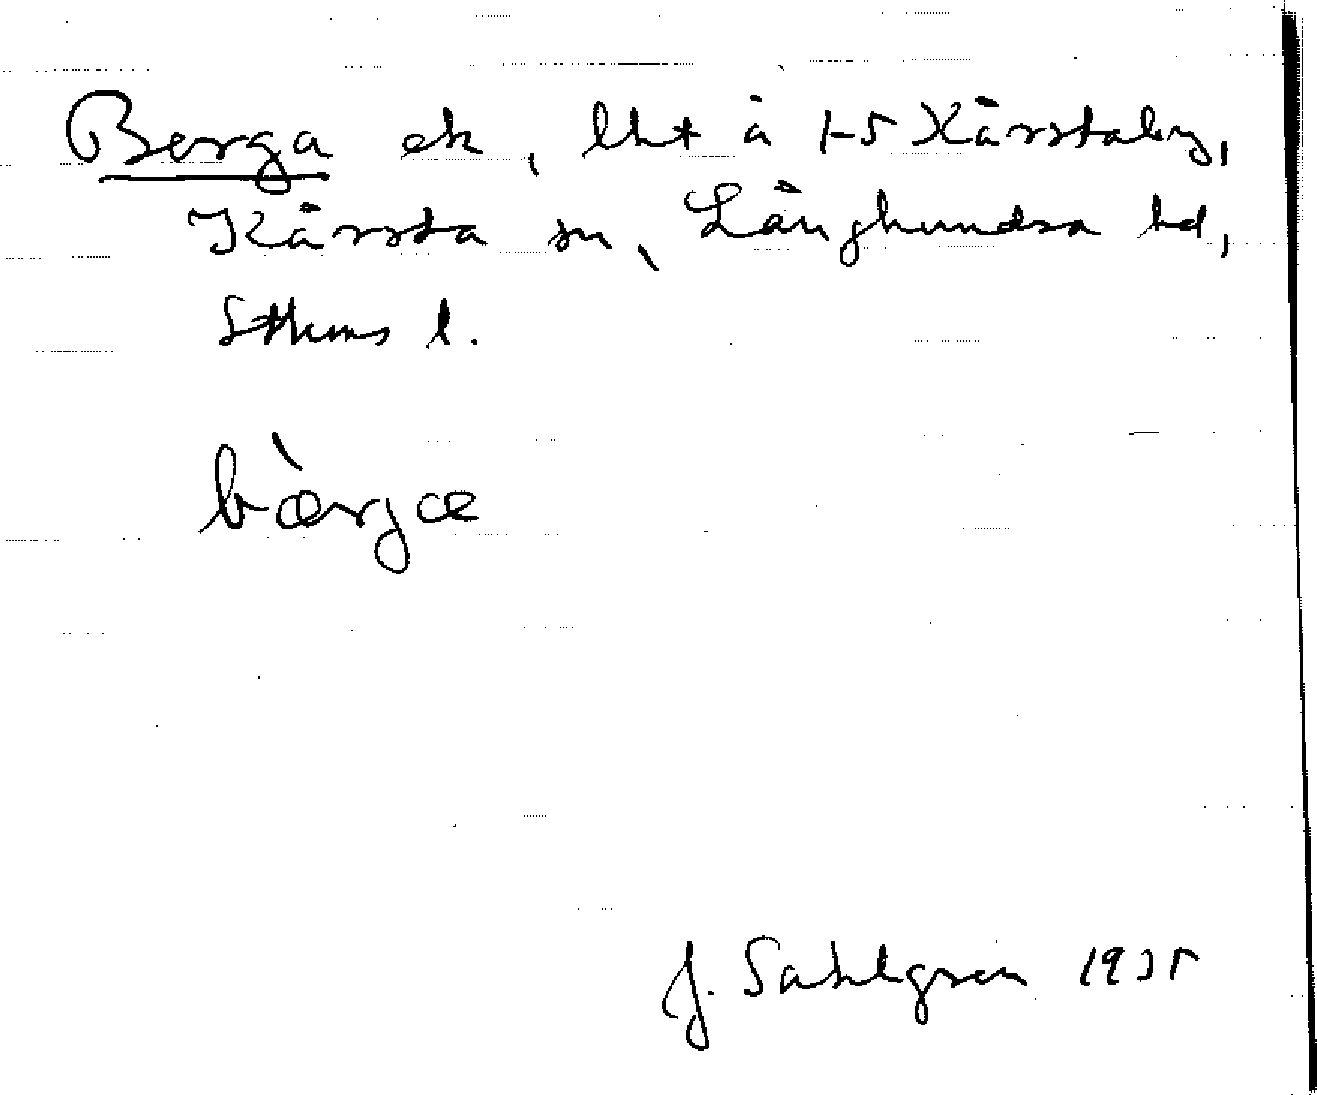 Berga ek, lht å 1-5 Kårstaby,
Kårsta sn, Långhundra hd,
Sthms l.
bærgæ
J. Sahlgren 1935